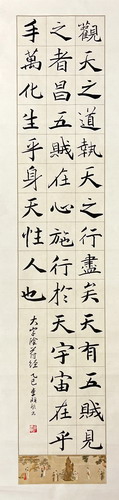 觀天之道執天之行盡矣天有五賊見
之者昌五賊在心施行於天宇宙在乎
手萬化生乎身天性人也